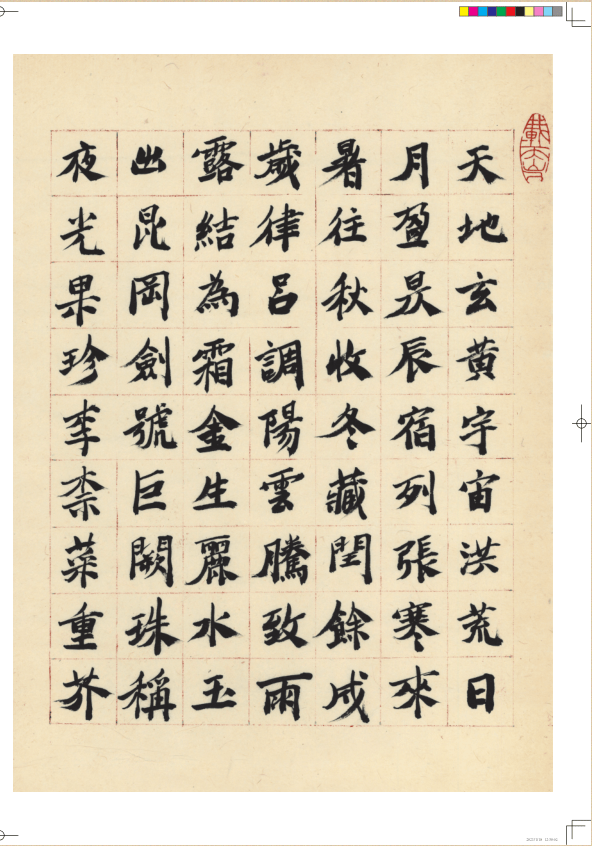 天地玄黄宇宙洪荒日
月盈昃辰宿列張寒來
暑往秋收冬藏閏餘成
歲律呂調陽雲騰致雨
露結為霜金生麗水玉
出昆岡劍號巨闕珠稱
夜光果珍李柰菜重芥